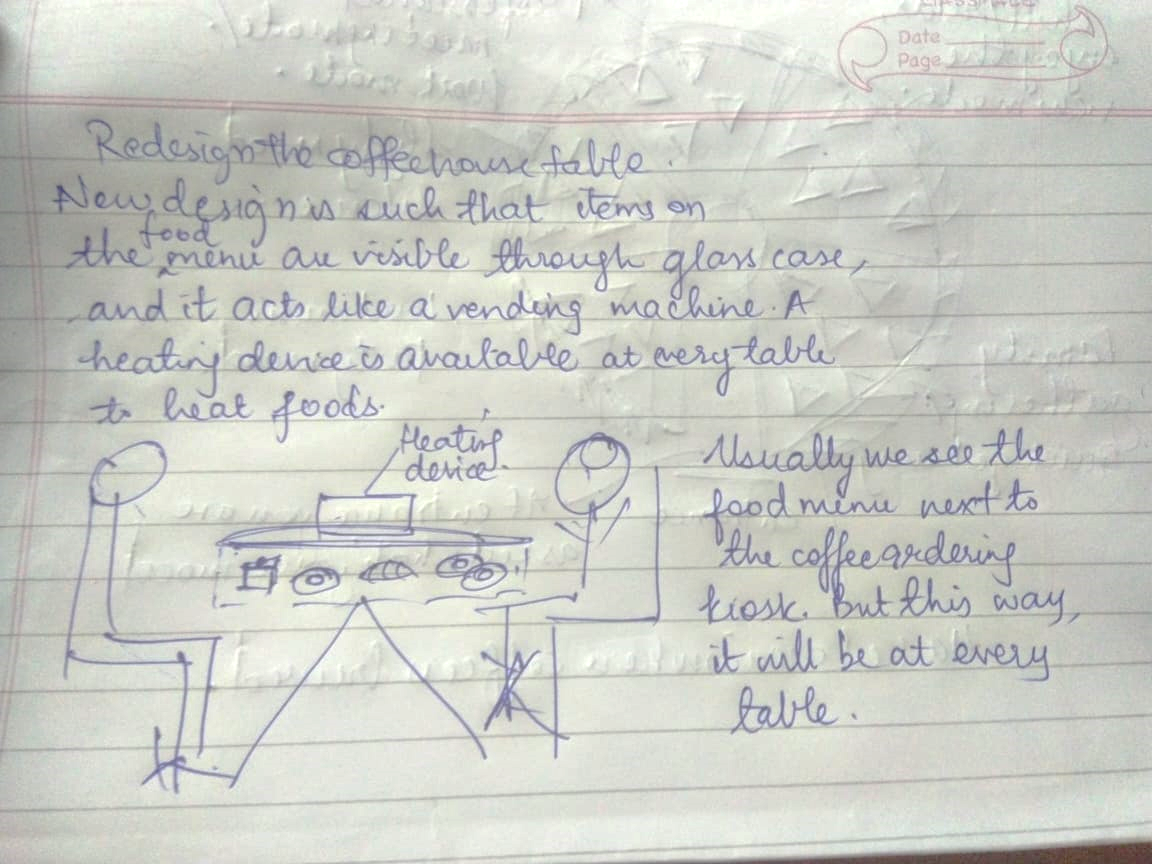 Date
Page
Redesign the coffeehouse table.
New design is such that items on
the food menu are visible through glass case,
and it acts like a vending machine. A
heating device is available at every table
to heat foods.
Heating
device.
Usually we see the
food menu next to
the coffee ordering
kiosk. But this way,
it will be at every
table.